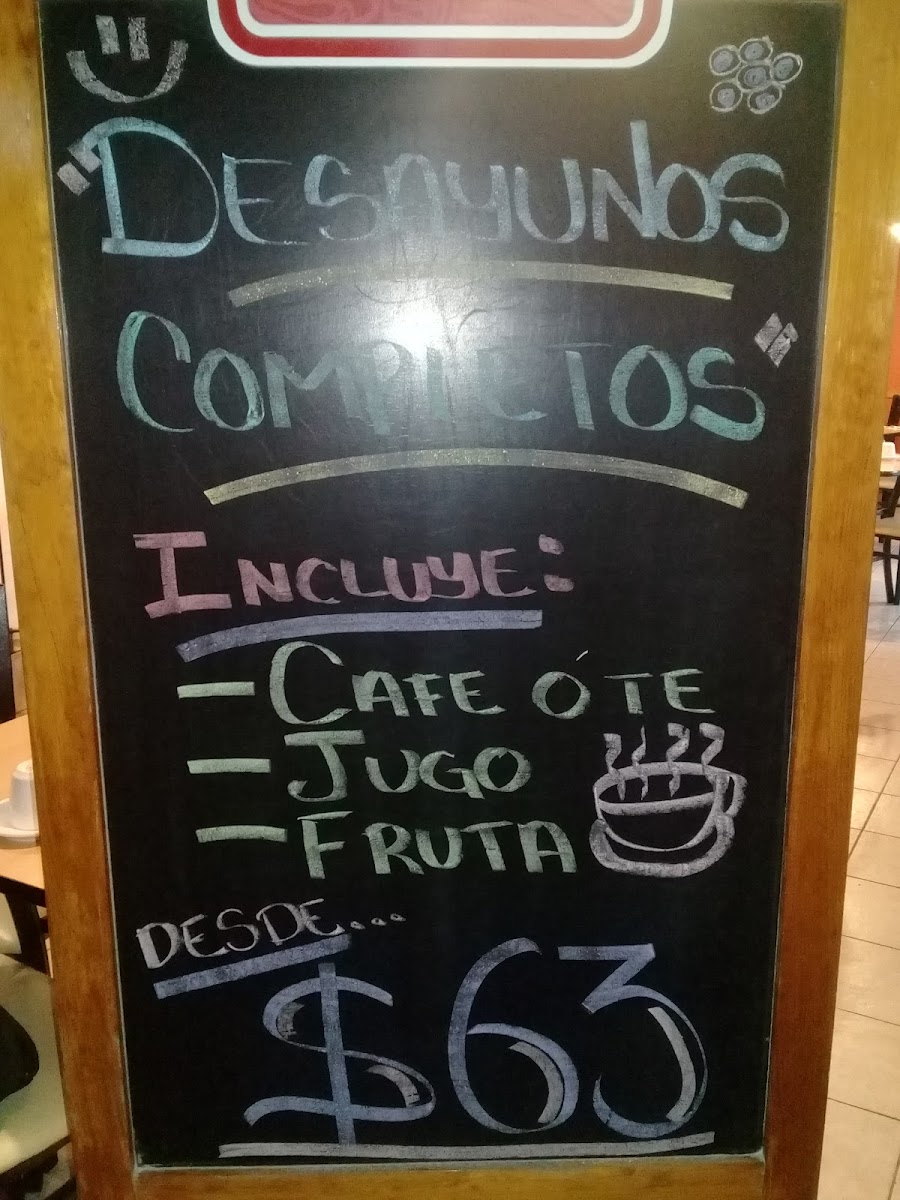 "DESAYUNOS
COMPLETOS"
INCLUYE:
- CAFE Ó TE
- JUGO
- FRUTA
DESDE...
$63